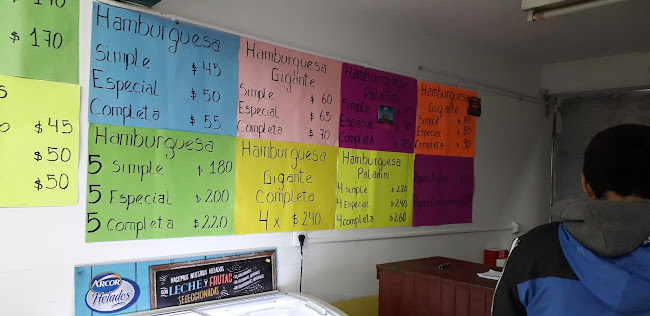 $ 170
$ 45
$ 50
$ 50
Hamburguesa
Simple $ 45
Especial $ 50
Completa $ 55
Hamburguesa
Gigante
Simple $ 60
Especial $ 65
Completa $ 70
Hamburguesa
Paladini
Simple
Especial
Completa
Hamburguesa
Gigante
Simple $ 80
Especial $ 85
Completa $ 90
Hamburguesa
5 Simple $ 180
5 Especial $ 200
5 Completa $ 220
Hamburguesa
Gigante
Completa
4 x $ 240
Hamburguesa
Paladini
4 Simple $ 220
4 Especial $ 240
4 Completa $ 260
ARCOR
Helados
HACEMOS NUESTROS HELADOS
CON LECHE Y FRUTAS
SELECCIONADAS